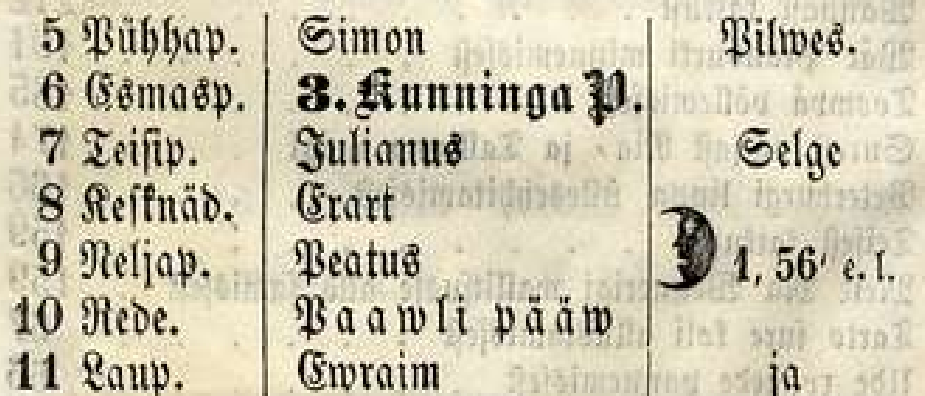 5 Pühhap. Simon Pilwes.
6 Esmasp. 3. Kunninga P.
7 Teisip. Julianus Selge
8 Keſknäd. Erart
9 Neljap. Peatus 1, 56' e. l.
10 Rede. Paawli pääw
11 Laup. Ewraim ja